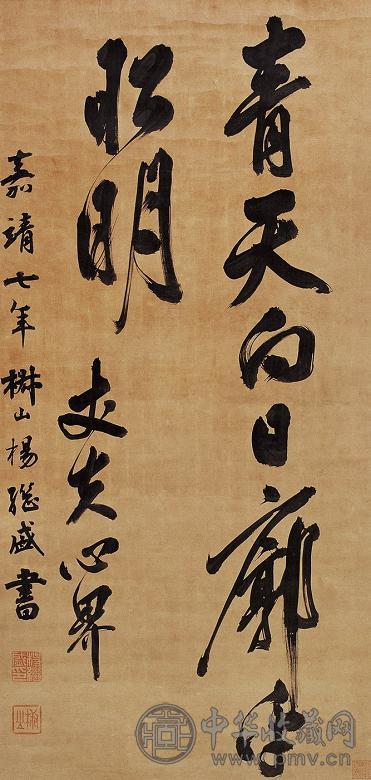 青天白日廓乎
昭明 丈夫心界
嘉靖七年椒山楊繼盛書
中华收藏网
www.pmv.cn